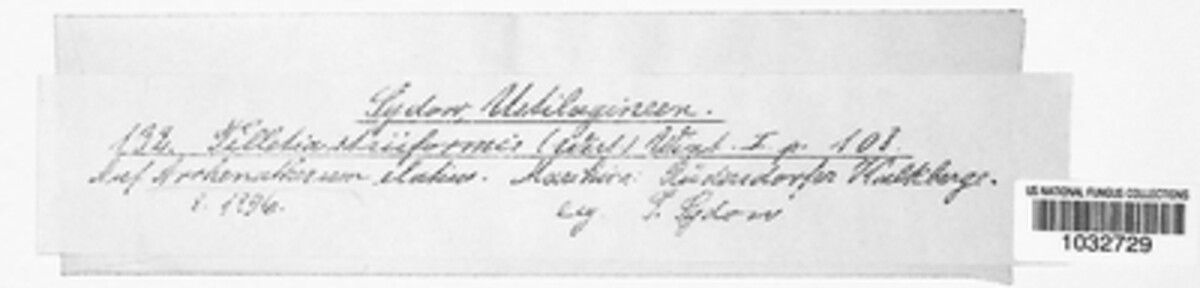 Sydow, Ustilagineen.
132. Tilletia striiformis (West.) Wint. I p. 108.
Auf Arrhenatherum elatius. Rüdersdorfer Kalkberge.
1896.
leg. P. Sydow
US NATIONAL FUNGUS COLLECTIONS
1032729